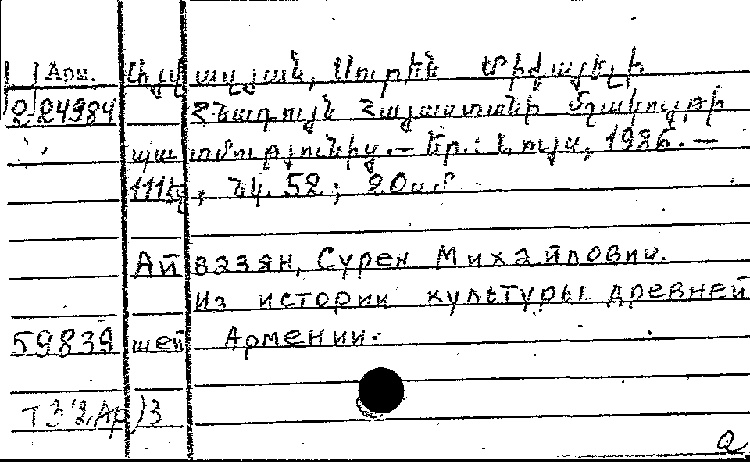 Арм. Այվազյան, Սուրեն Միքայելի
2-24984 Հնագույն Հայաստանի մշակույթի
պատմությունից.— Եր.: Լույս, 1986.—
111էջ, նկ. 52; 20սմ
Айвазян, Сурен Михайлович.
Из истории культуры древней
59839 шей Армении.
Т3(2Ар)3